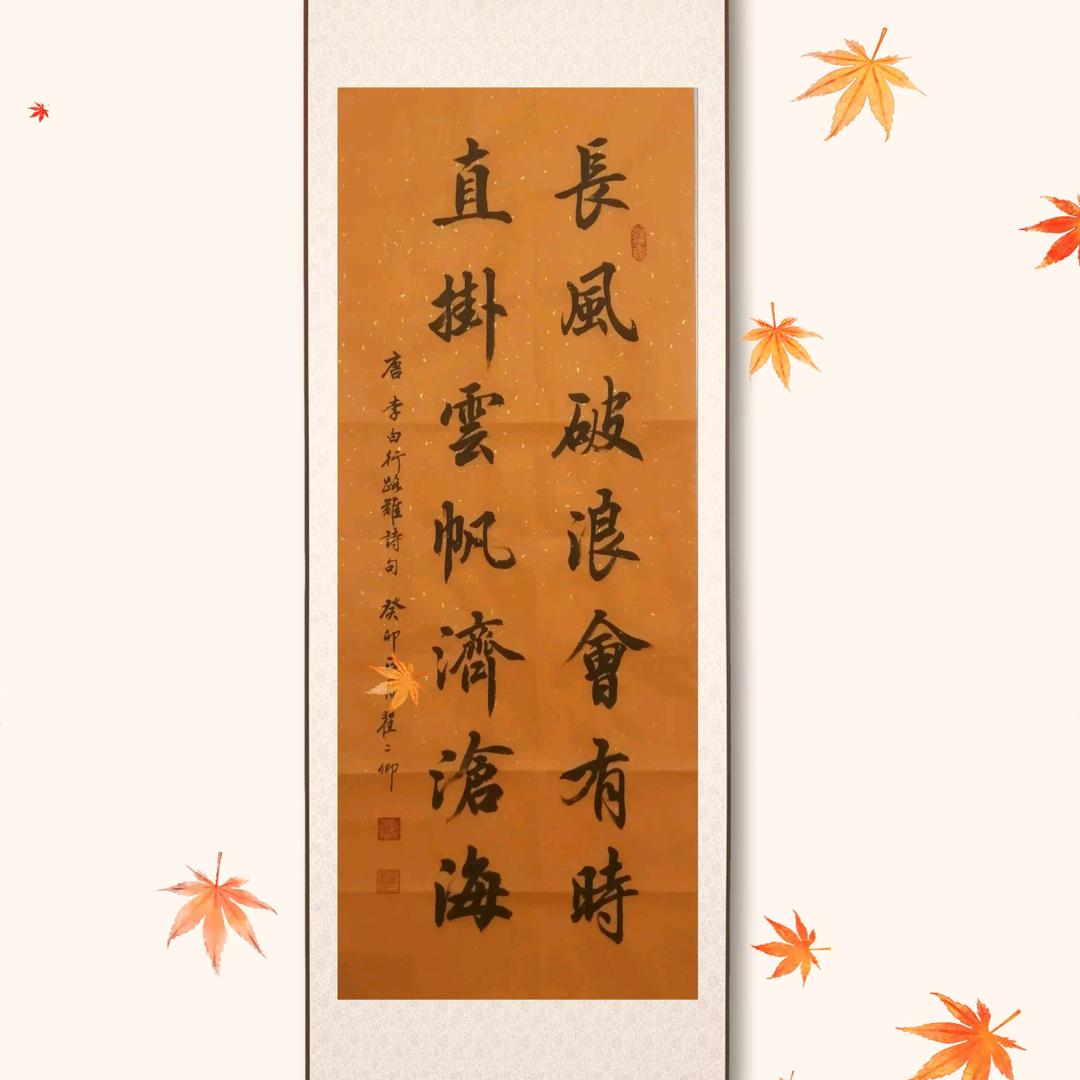 長風破浪會有時
直掛雲帆濟滄海
唐李白行路難詩句 癸卯 翟二卿